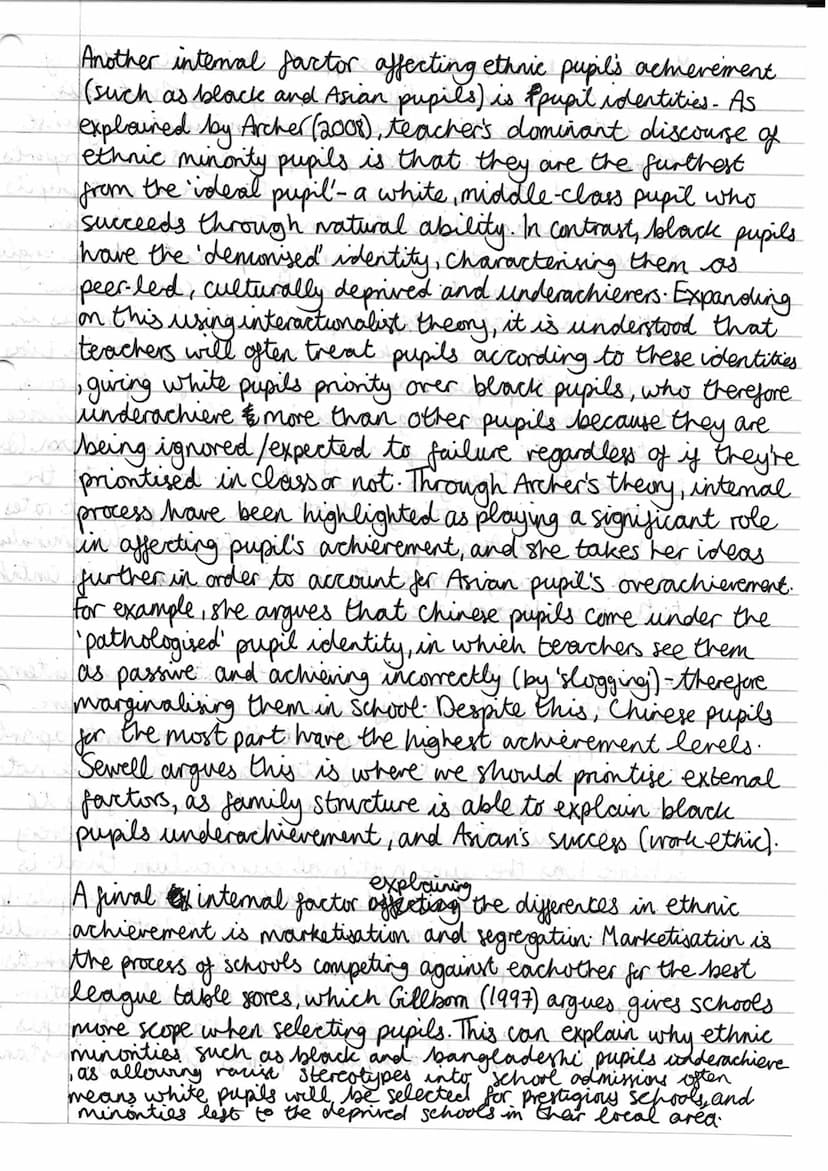 Another internal factor affecting ethnic pupil's achievement
(such as black and Asian pupils) is pupil identities. As
explained by Archer (2008), teacher's dominant discourse of
ethnic minority pupils is that they are the furthest
from the 'ideal pupil' - a white, middle-class pupil who
succeeds through natural ability. In contrast, black pupils
have the 'demonised' identity, characterising them as
peer-led, culturally deprived and underachievers. Expanding
on this using interactionalist theory, it is understood that
teachers will often treat pupils according to these identities
, giving white pupils priority over black pupils, who therefore
underachieve more than other pupils because they are
being ignored/expected to failure regardless of if they're
prioritised in class or not. Through Archer's theory, internal
process have been highlighted as playing a significant role
in affecting pupil's achievement, and she takes her ideas
further in order to account for Asian pupil's overachievement.
For example, she argues that Chinese pupils come under the
'pathologised' pupil identity, in which teachers see them
as passive and achieving incorrectly (by 'slogging') - therefore
marginalising them in school. Despite this, Chinese pupils
for the most part have the highest achievement levels.
Sewell argues this is where we should prioritise external
factors, as family structure is able to explain black
pupils underachievement, and Asian's success (work ethic).
A final internal factor explaining the differences in ethnic
achievement is marketisation and segregation. Marketisation is
the process of schools competing against eachother for the best
league table scores, which Gillborn (1997) argues gives schools
more scope when selecting pupils. This can explain why ethnic
minorities such as black and bangladeshi pupils underachieve
, as allowing racist stereotypes into school admissions often
means white pupils will be selected for prestigious schools, and
minorities left to the deprived schools in their local area.